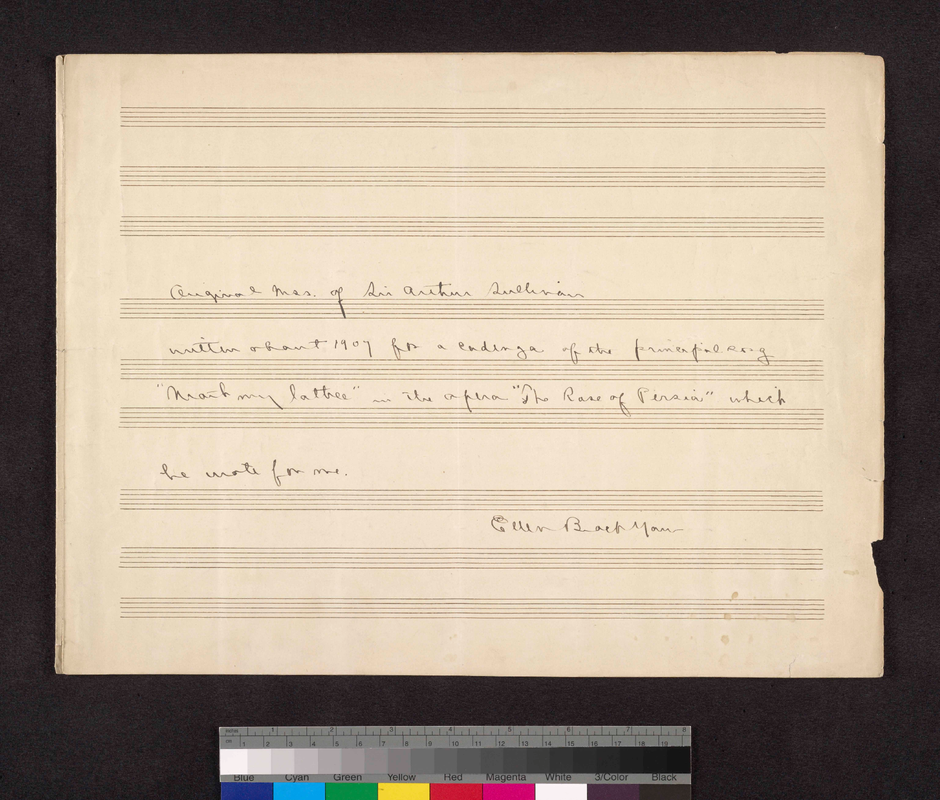 Original Mss. of Sir Arthur Sullivan
written about 1907 for a cadenza of the principal song
"'Neath my lattice" in the opera "The Rose of Persia" which
he wrote for me.
Ellen Beach Yaw
1 2 3 4 5 6 7 8
1 2 3 4 5 6 7 8 9 10 11 12 13 14 15 16 17 18 19
Blue Cyan Green Yellow Red Magenta White 3/Color Black